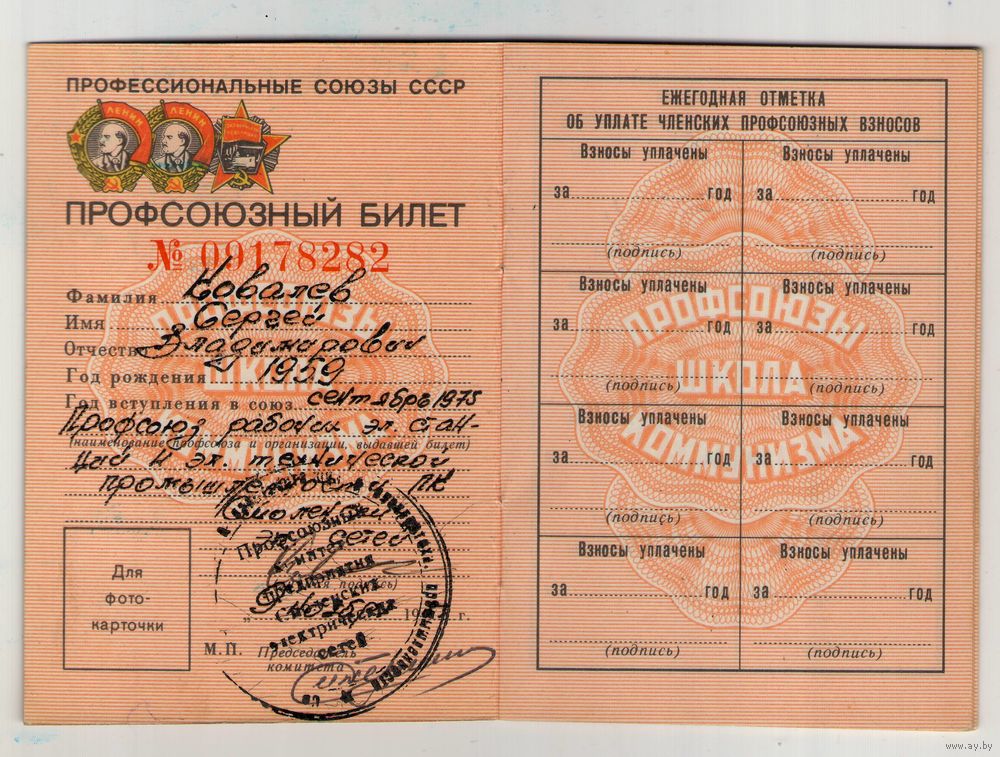 ПРОФЕССИОНАЛЬНЫЕ СОЮЗЫ СССР
ЛЕНИН ЛЕНИН
ПРОФСОЮЗНЫЙ БИЛЕТ
№ 09178282
Фамилия Ковалев
Имя Сергей
Отчество Владимирович
Год рождения 1959
Год вступления в союз сентябрь 1975
Профсоюз рабочих эл. стан-
(наименование профсоюза и организации, выдавшей билет)
ций и эл. технической
промышленности ПК
Смоленских
эл. сетей
(личная подпись)
Для
фото-
карточки
19 г.
М.П. Председатель
комитета
Профсоюзный
комитет
предприятия
Смоленских
электрических
сетей
ПРОФСОЮЗЫ
ШКОЛА
КОММУНИЗМА
ЕЖЕГОДНАЯ ОТМЕТКА
ОБ УПЛАТЕ ЧЛЕНСКИХ ПРОФСОЮЗНЫХ ВЗНОСОВ
Взносы уплачены Взносы уплачены
за год за год
(подпись) (подпись)
Взносы уплачены Взносы уплачены
за год за год
(подпись) (подпись)
Взносы уплачены Взносы уплачены
за год за год
(подпись) (подпись)
Взносы уплачены Взносы уплачены
за год за год
(подпись) (подпись)
ПРОФСОЮЗЫ
ШКОЛА
КОММУНИЗМА
www.ay.by